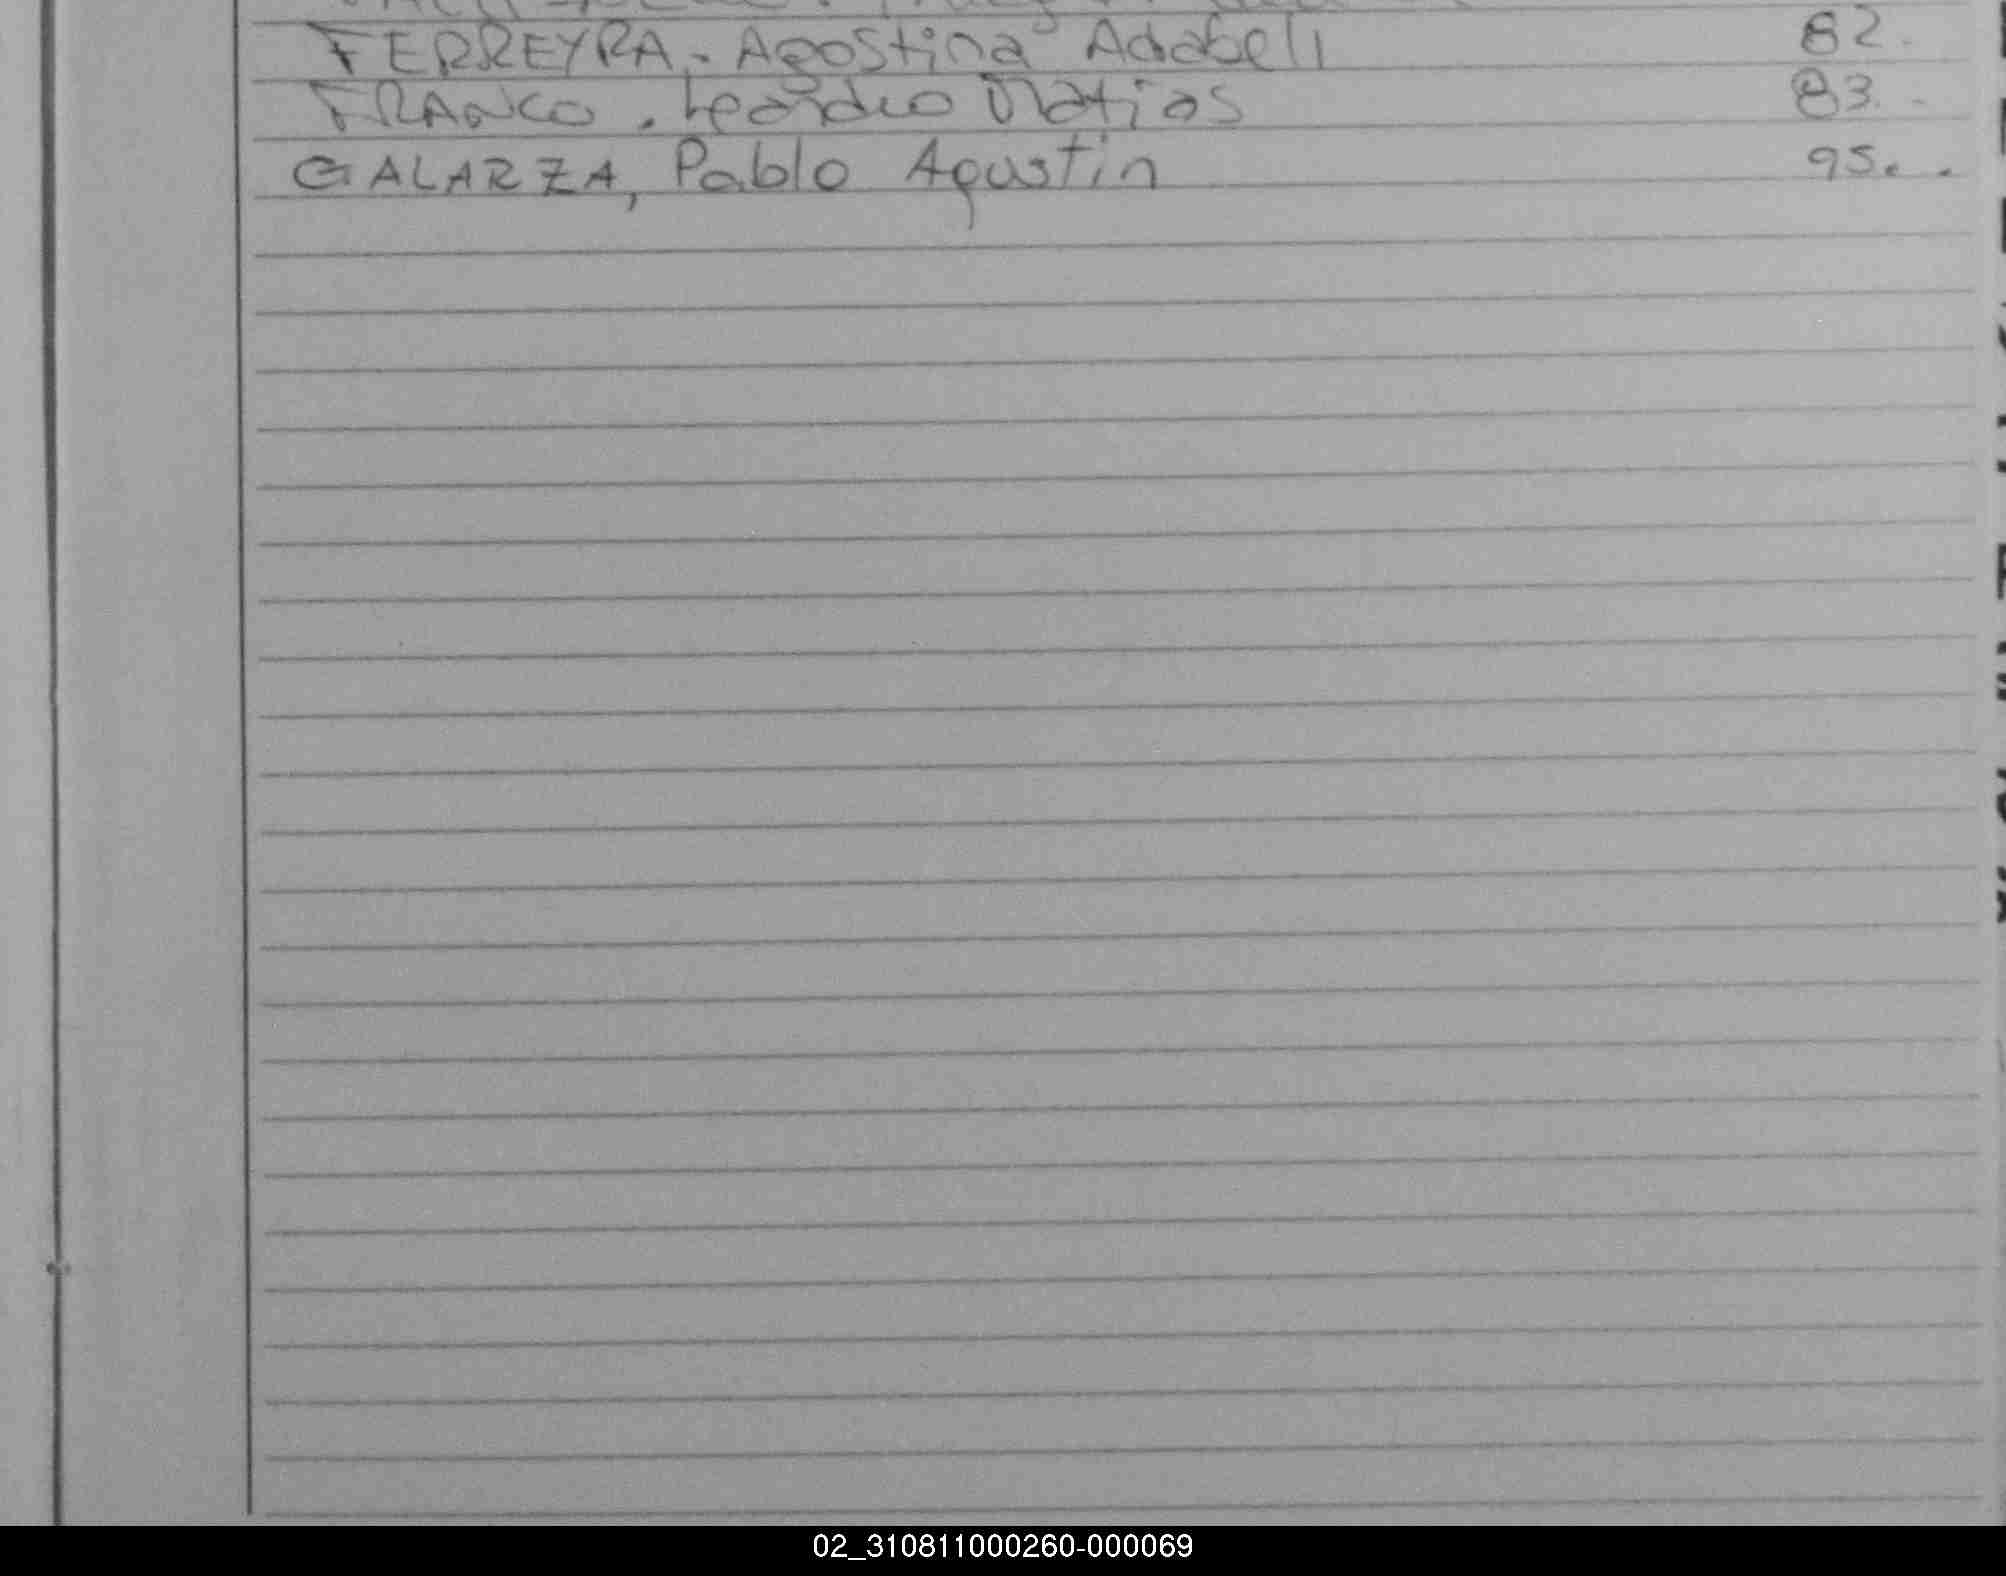 FERREYRA,- Agostina Adabeli 82.
FRANCO. Leandro Matias 83. -
GALARZA, Pablo Agustin 95. .
02_310811000260-000069